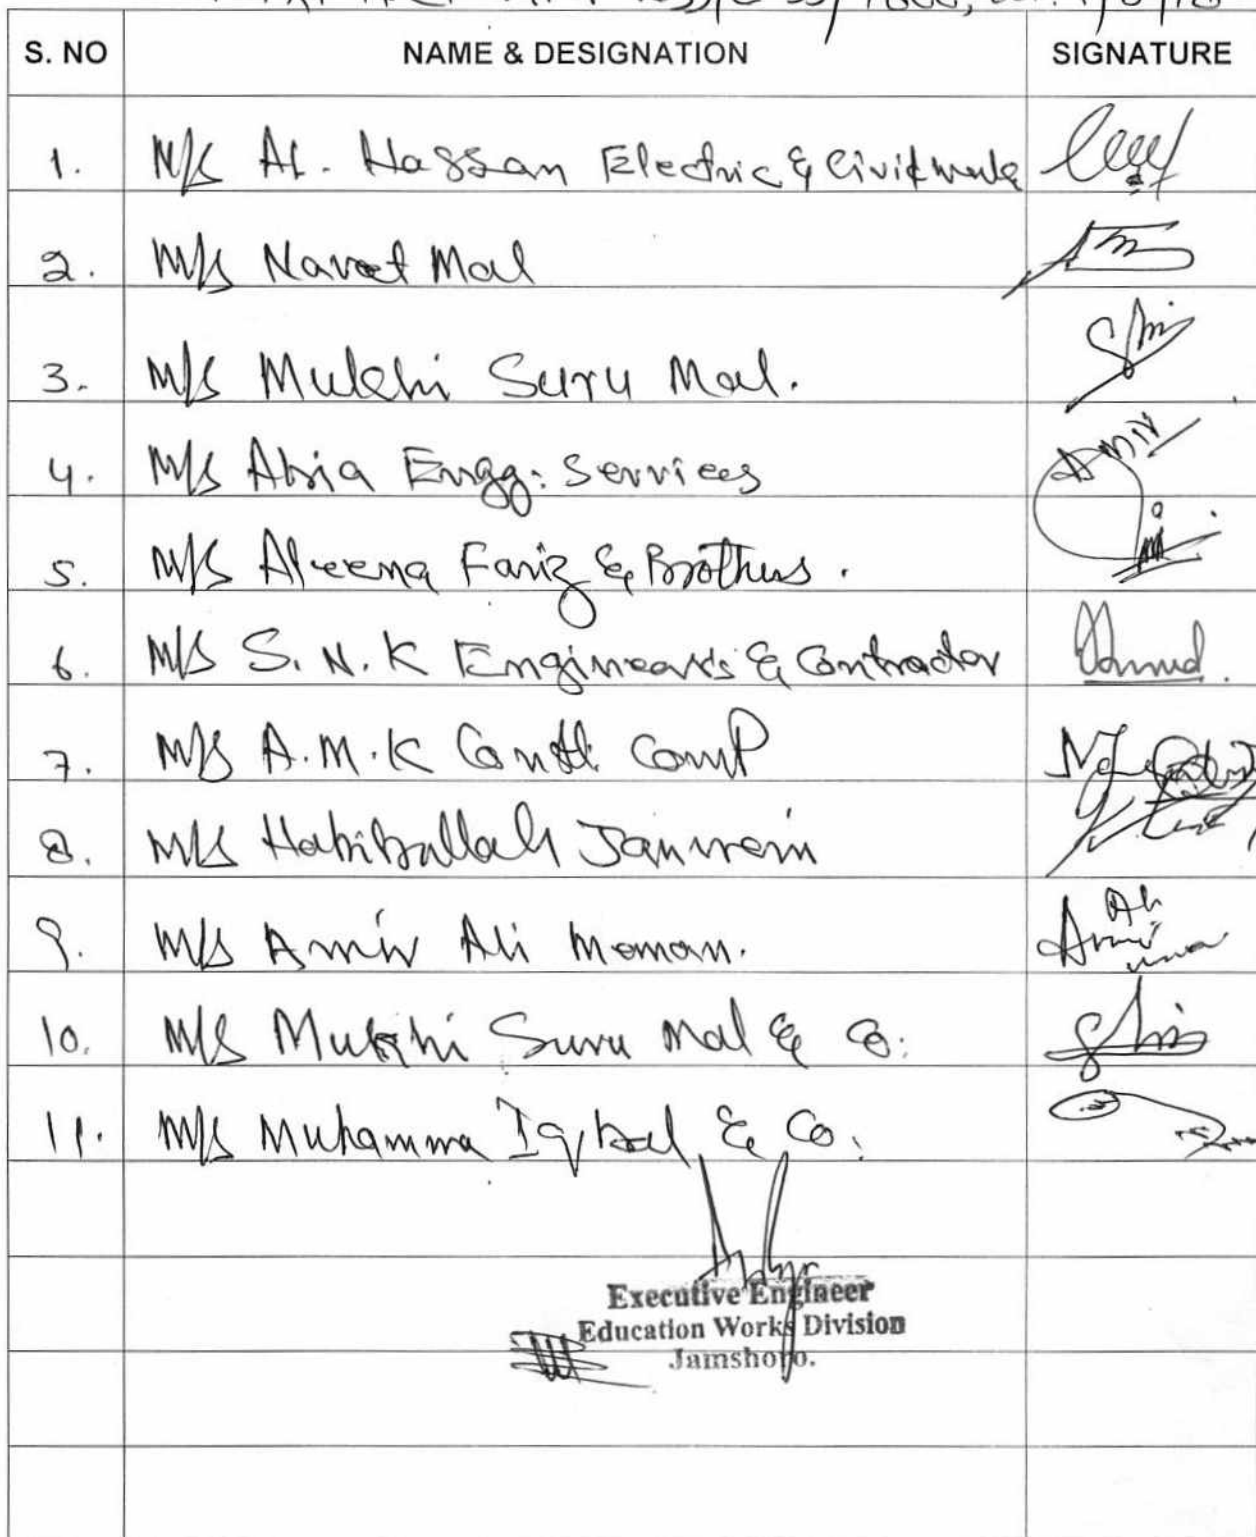 S. NO NAME & DESIGNATION SIGNATURE
1. M/S Al. Hassan Electric & Civil work
2. M/S Navet Mal
3. M/S Mukhi Suru Mal.
4. M/S Abia Engg: Services
5. M/S Aleena Fariz & Brothers.
6. M/S S. N. K Engineers & Contractor
7. M/S A.M.K Constt. Comp
8. M/S Habibullah
9. M/S Amir Ali Memon.
10. M/S Mukhi Suru Mal & Co.
11. M/S Muhamma Iqbal & Co.
Executive Engineer
Education Works Division
Jamshoro.